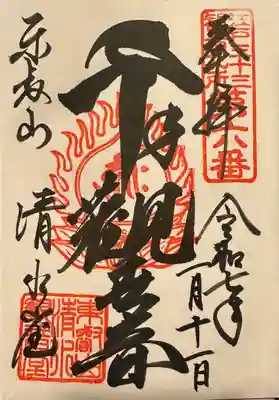 奉拝
令和七年
一月十一日
千手觀世音
東叡山
清水堂